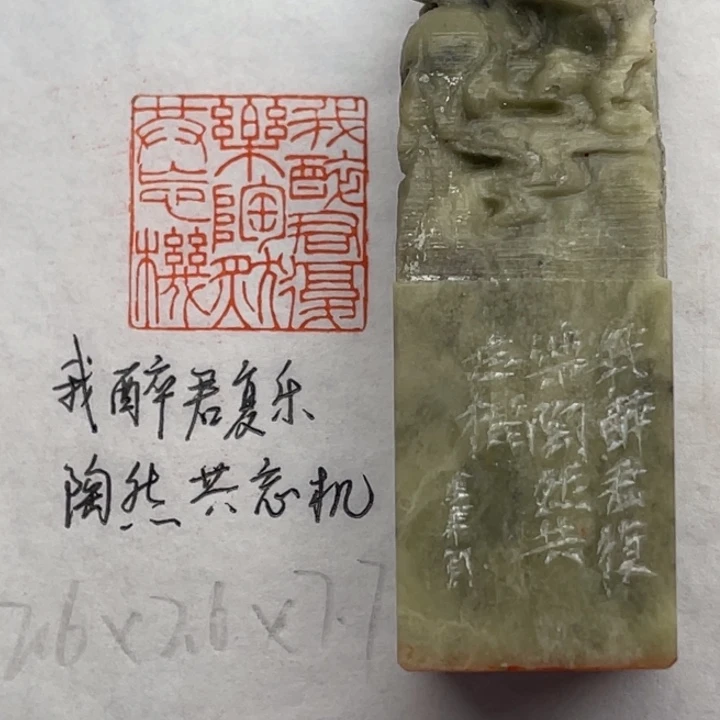 我醉君復
樂陶然
共忘機
我醉君复乐
陶然共忘机
7.6×2.6×7.7
我醉君復
樂陶然共
忘機